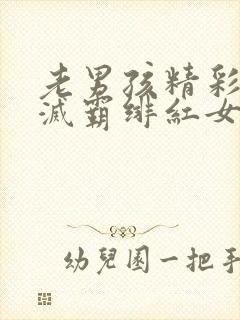 老男孩精彩
滅霸绯紅女
幼兒園一把手